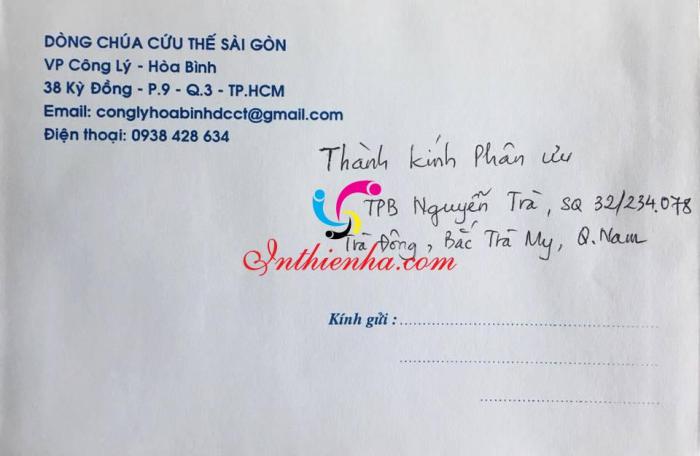 DÒNG CHÚA CỨU THẾ SÀI GÒN
VP Công Lý - Hòa Bình
38 Kỳ Đồng - P.9 - Q.3 - TP.HCM
Email: conglyhoabinhdcct@gmail.com
Điện thoại: 0938 428 634
Thành kính Phân ưu
TPB Nguyễn Trà, SQ 32/234.078
Trà Đông, Bắc Trà My, Q.Nam
Inthienha.com
Kính gửi :